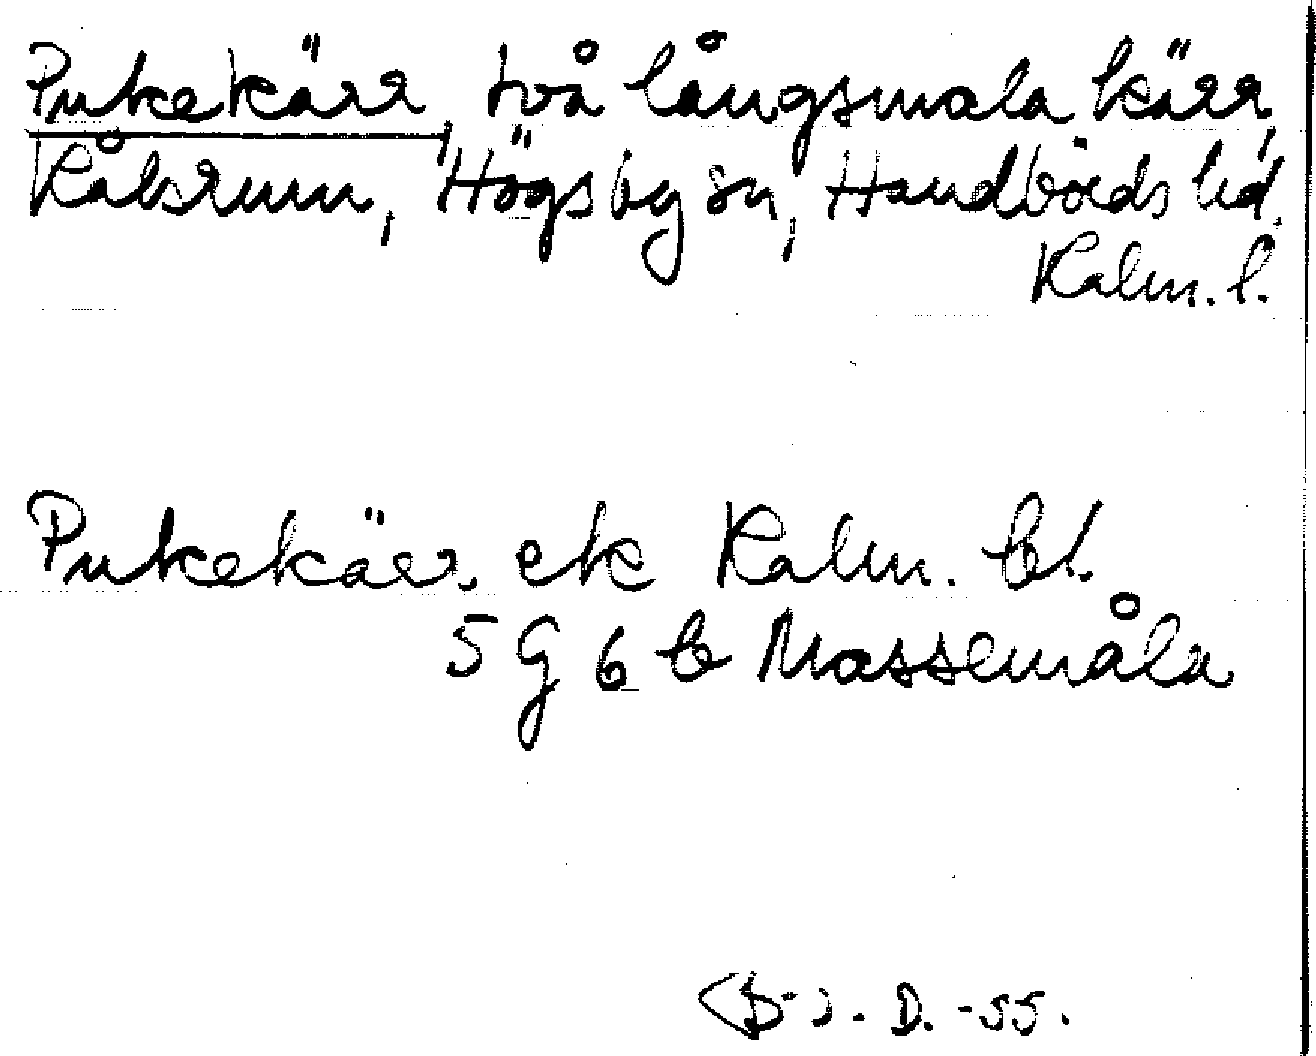 Pukekärr, två långsmala kärr,
Kåksrum, Högsby sn, Handbörds hd.
Kalm. l.
Pukekärr. ek Kalm. bl.
5 G 6 b Massemåla
D. -55.